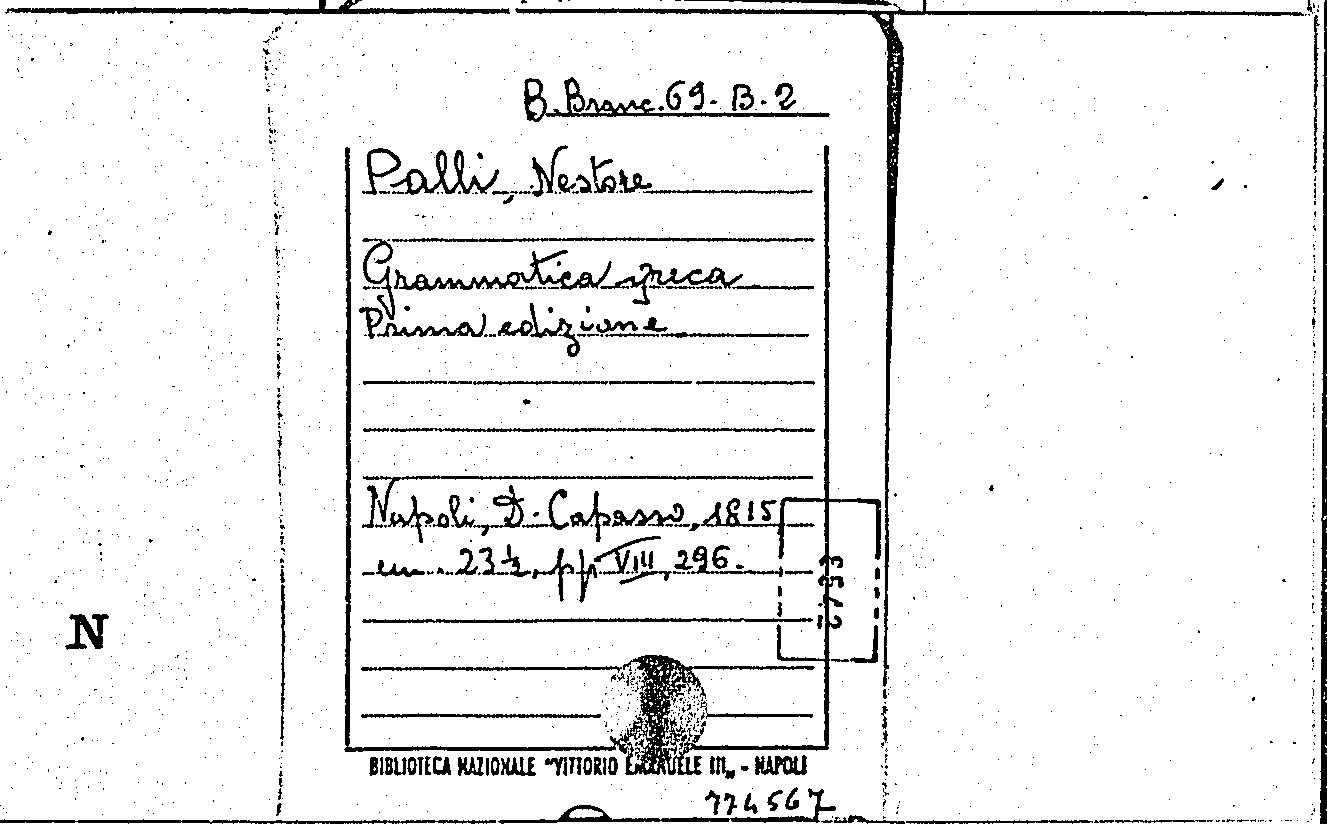 B. Branc. 69. B. 2
Palli, Nestore
Grammatica greca
Prima edizione.
Napoli, D. Capasso, 1815
cm. 23½, pp VIII, 296.
N
BIBLIOTECA NAZIONALE "VITTORIO EMANUELE III„ - NAPOLI
774567